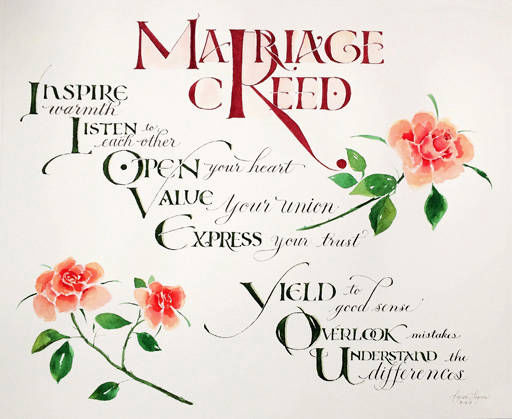 MARRIAGE
CREED
INSPIRE
warmth
LISTEN to
each other
OPEN your heart
VALUE your union
EXPRESS your trust
YIELD to
good sense
OVERLOOK mistakes
UNDERSTAND the
differences